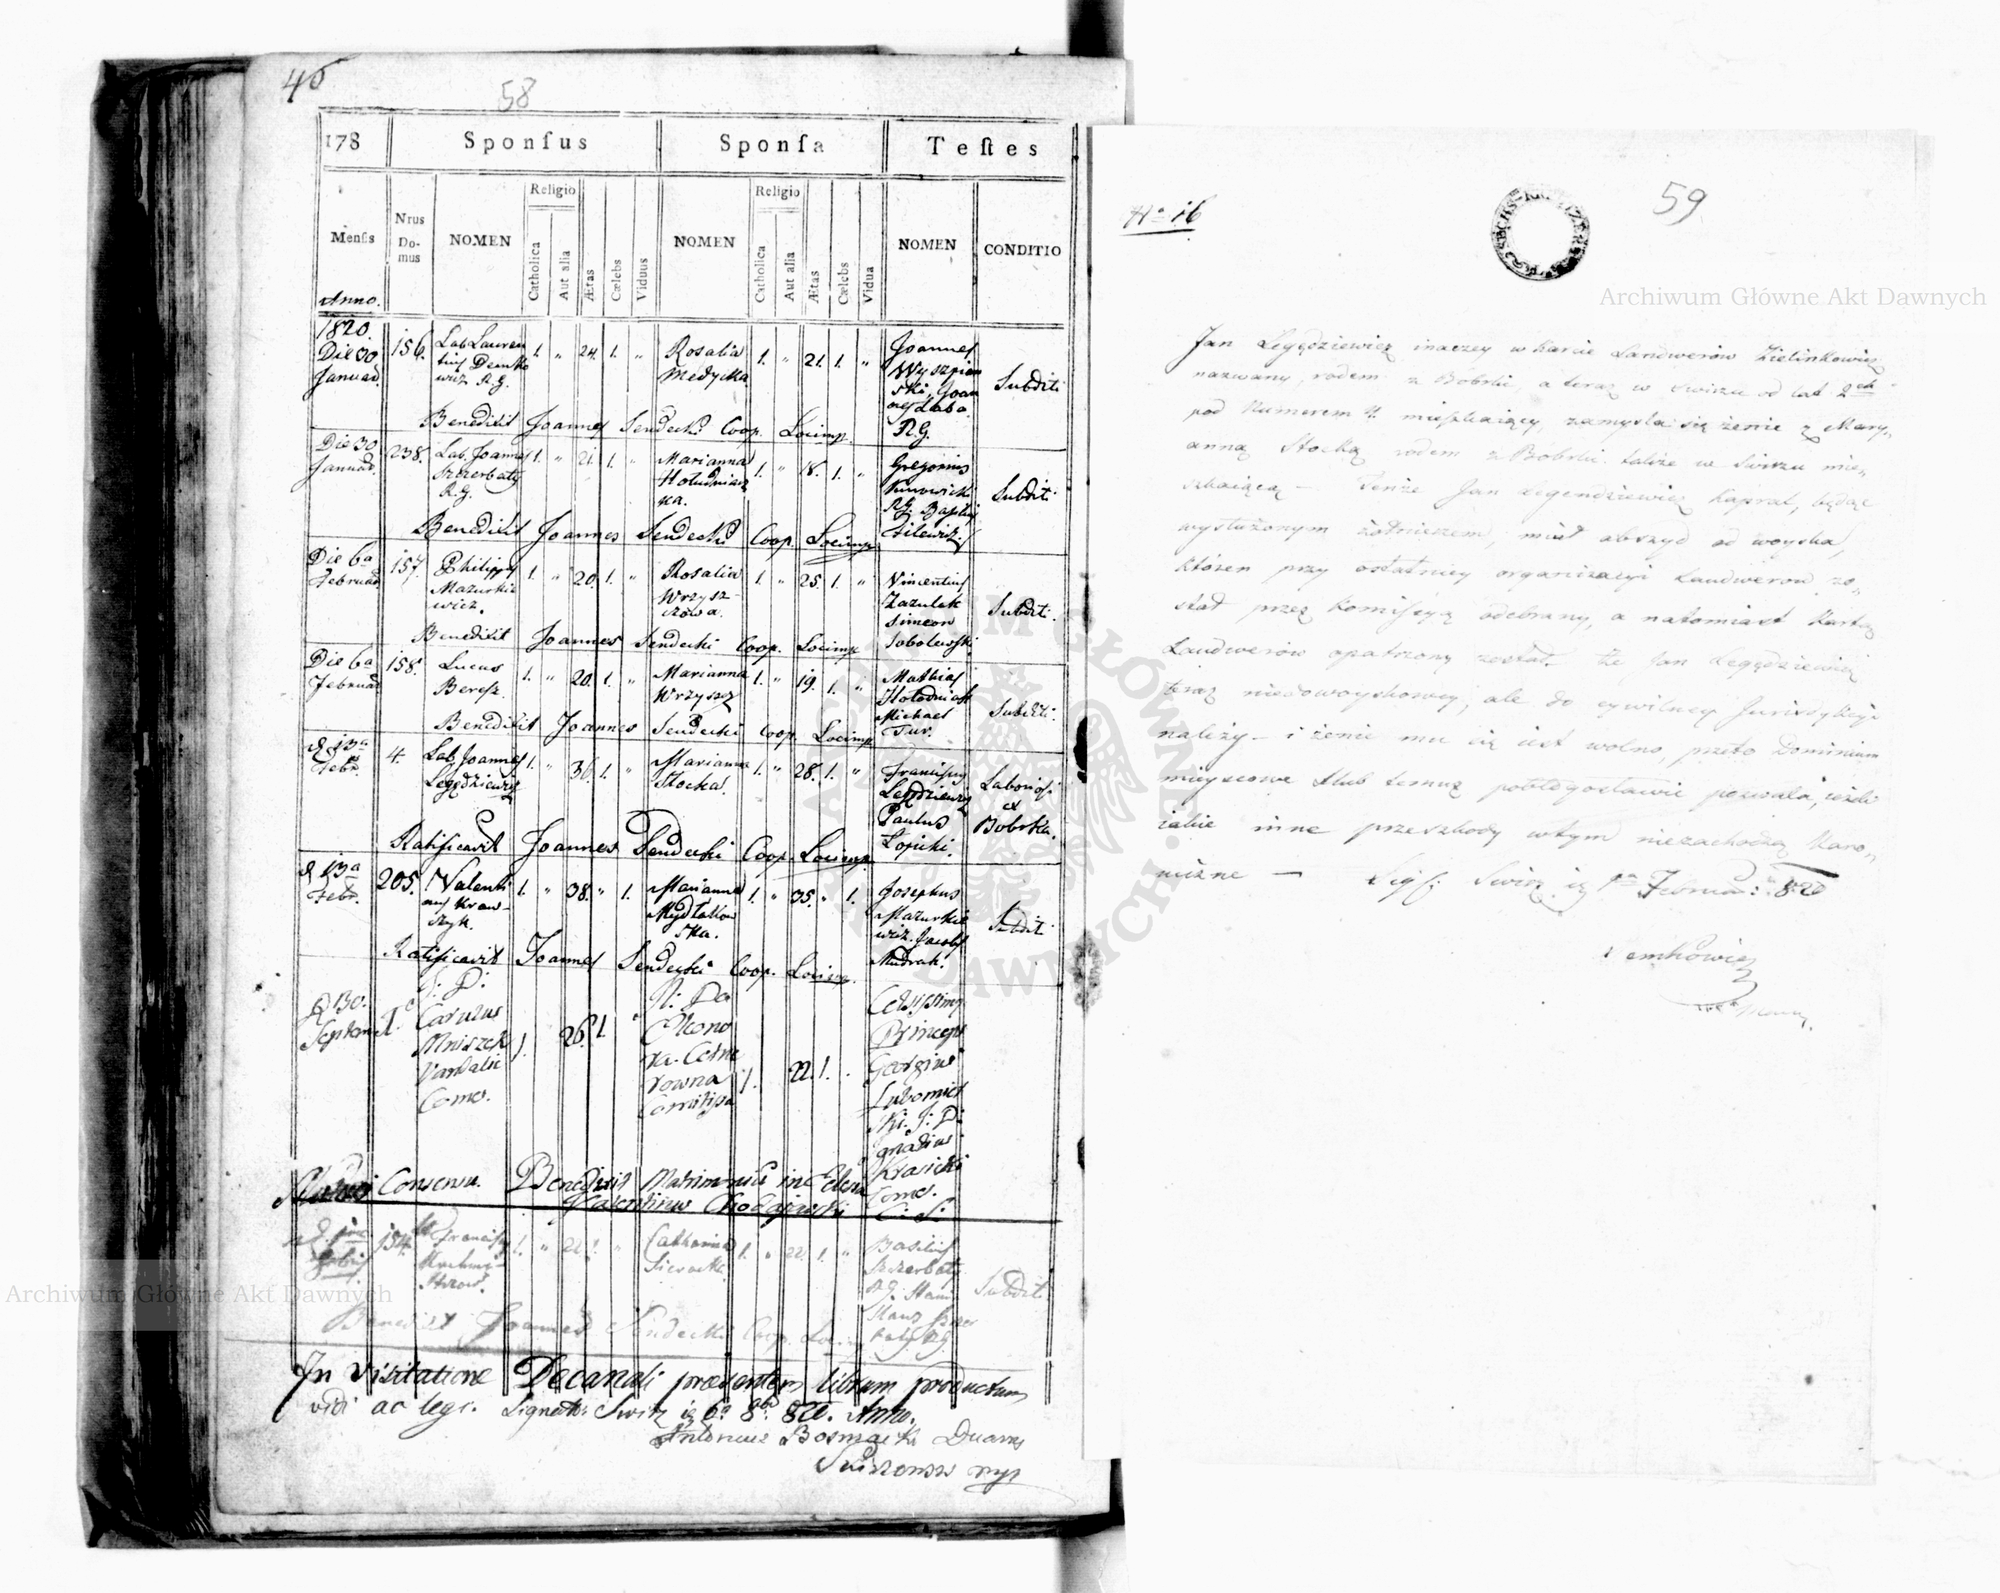 45
58
178
Sponsus
Sponsa
Testes
Mensis
Nrus Do-mus
NOMEN
Religio
Catholica
Aut alia
Ætas
Cælebs
Viduus
NOMEN
Religio
Catholica
Aut alia
Ætas
Cælebs
Vidua
NOMEN
CONDITIO
Anno.
1820.
Die 30 Januar.
156.
Lab. Lauren
tius Demko
wicz R. G.
1. " 24. 1. "
Rosalia
Medycka
1. " 21. 1. "
Joannes
Wyszpian
ski, Joan
nes Laba
R. G.
Subditi
Benedixit Joannes Sendecki Coop. Locimp.
Die 30 Januar.
238.
Lab. Joannes
Szczerbaty
R. G.
1. " 21. 1. "
Marianna
1. " 18. 1. "
Gregorius
Subditi
Benedixit Joannes Sendecki Coop. Locimp.
Die 6a Februar
157.
Philippus
Mazurkie
wicz.
1. " 20. 1. "
Rosalia
Wrzysz-
czowa.
1. " 25. 1. "
Vincentius
Zazulak
Simeon
Sobolewski
Subditi.
Benedixit Joannes Sendecki Coop. Locimp
Die 6a Februar
158.
Lucas
Beresz.
1. " 20. 1. "
Marianna
Wrzyszcz
1. " 19. 1. "
Mathias
Michael
Tur.
Subditi.
Benedixit Joannes Sendecki Coop. Locimp
d. 13a Febr.
4.
Lab. Joannes
Legędziewicz
1. " 36. 1. "
Marianna
Stocka.
1. " 28. 1. "
Franciscus
Legędziewicz
Paulus
Łopicki.
Laboriosi
ex
Bobrka.
Ratificavit Joannes Sendecki Coop. Locimp.
d. 13a Febr.
205.
Valenti
nus Kraw-
czyk.
1. " 38. " 1.
Marianna
Mydłakow
ska.
1. " 35. " 1.
Josephus
Mazurkie
wicz. Jacobus
Mudrak.
Subditi
Ratificavit Joannes Sendecki Coop. Locimp.
d 30. Septem
J. D:
Carolus
Mniszek
Vandalin
Comes.
1. 26. 1.
Eleono
ra Cetne
rowna
Comitissa
1. 22. 1.
Celsissimus
Princeps
Georgius
Lubomirs
ki. J: D:
Ignatius
Krasicki
Comes.
Consensu. Benedixit Matrimonium
154.
Francis
1. " 22. 1. "
Catharina
1. " 22. 1. "
Basilius
Szczerbaty
R. G. Stani
Subditi
Benedixit Joannes Sendecki Coop. Locimp
In Visitatione Decanali praesentem librum productum
vidi ac legi. Signatum Swirz 6a 8bris 820. Anno.
Antonius
No 16
59
Jan Legędziewicz inaczey w Karcie Landwerów Zielinkowicz
nazwany, rodem z Bobrki, a teraz w Swirzu od lat 2ch
pod Numerem 4. mieszkaiący, zamysla się żenic z Mary„
anną Stocką rodem z Bobrki także w Swirzu mie„
szkaiącą — Tenże Jan Legendziewicz Kapral, będąc
wysłużonym żołnierzem, miał abszyd od woyska,
któren przy ostatniey organizacyi Landwerow zo„
stał przez Komissyą odebrany, a natomiast Kartą
Landwerów opatrzony został. Że Jan Legędziewicz
teraz nie do woyskowey, ale do cywilney Jurisdykcyi
należy — i żenic mu się iest wolno, przeto Dominium
mieyscowe slub temuż pobłogosławic pozwala, ieżeli
iakie inne przeszkody wtym niezachodzą Karo„
niczne — Sig: Swirz 1a Februar: 820
Archiwum Główne Akt Dawnych
Archiwum Główne Akt Dawnych
ARCHIWUM GŁÓWNE AKT DAWNYCH